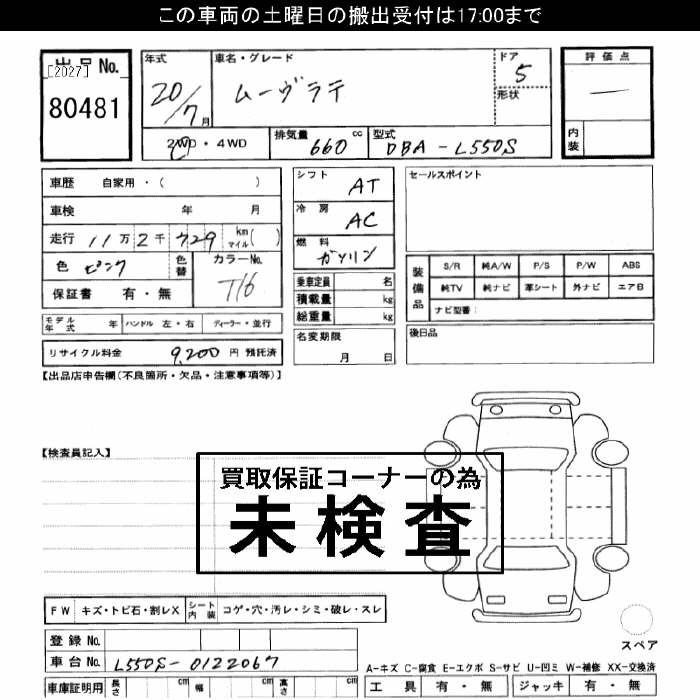 この車両の土曜日の搬出受付は17:00まで
出品No.
[2027]
80481
年式
20/7月
車名・グレード
ムーヴラテ
ドア
5
形状
評価点
内装
2WD・4WD
排気量 660 cc
型式 DBA-L550S
車歴 自家用・( )
車検 年 月
走行 11万2千729 km マイル( )
色 ピンク
色替
カラーNo.
T16
保証書 有・無
モデル年式 年
ハンドル 左・右
ディーラー・並行
リサイクル料金 9,200 円 預託済
シフト AT
冷房 AC
燃料 ガソリン
乗車定員 名
積載量 kg
総重量 kg
名変期限
月 日
セールスポイント
装備品
S/R 純A/W P/S P/W ABS
純TV 純ナビ 革シート 外ナビ エアB
ナビ型番:
後日品
【出品店申告欄(不良箇所・欠品・注意事項等)】
【検査員記入】
買取保証コーナーの為
未検査
FW キズ・トビ石・割レX
シート内装 コゲ・穴・汚レ・シミ・破レ・スレ
スペア
登録No.
車台No. L550S-0122067
車庫証明用 長さ cm 幅 cm 高さ cm
A-キズ C-腐食 E-エクボ S-サビ U-凹ミ W-補修 XX-交換済
工具 有・無 ジャッキ 有・無